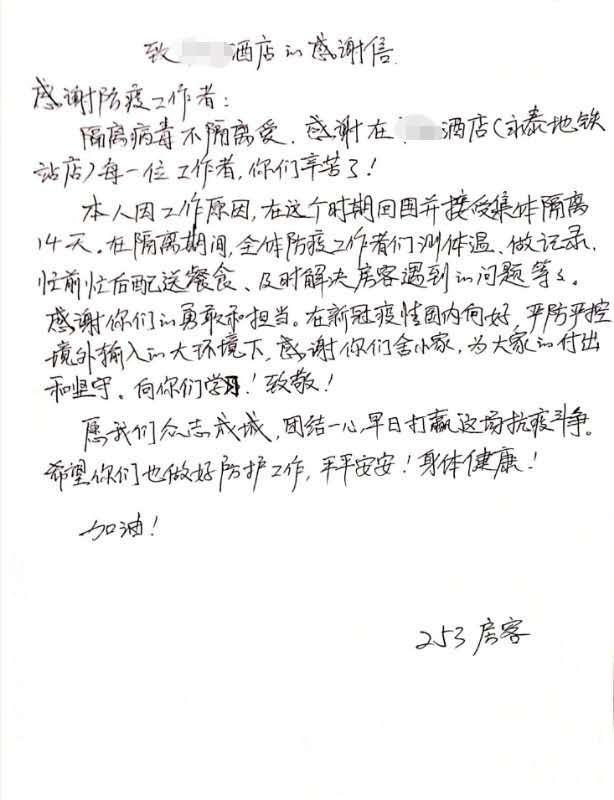 致 酒店的感谢信
感谢防疫工作者：
隔离病毒不隔离爱，感谢在 酒店(永泰地铁
站店)每一位工作者，你们辛苦了！
本人因工作原因，在这个时期回国并接受集体隔离
14天。在隔离期间，全体防疫工作者们测体温、做记录、
忙前忙后配送餐食、及时解决房客遇到的问题等等。
感谢你们的勇敢和担当。在新冠疫情国内向好，严防严控
境外输入的大环境下，感谢你们舍小家，为大家的付出
和坚守。向你们学习！致敬！
愿我们众志成城，团结一心，早日打赢这场抗疫斗争。
希望你们也做好防护工作，平平安安！身体健康！
加油！
253 房客